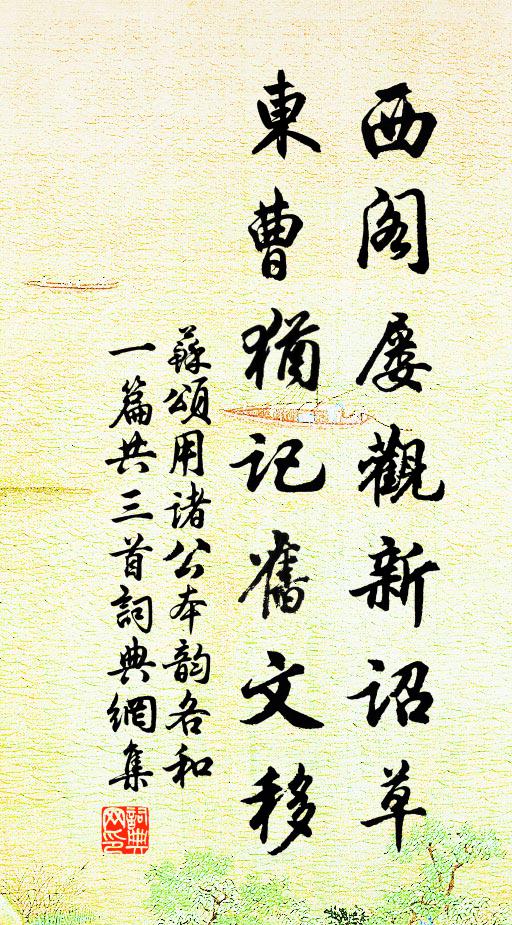 西閣屢觀新詔草
東曹猶記舊文移
蘇頌用諸公本韵各和
一篇共三首詞典網集
詞典网印